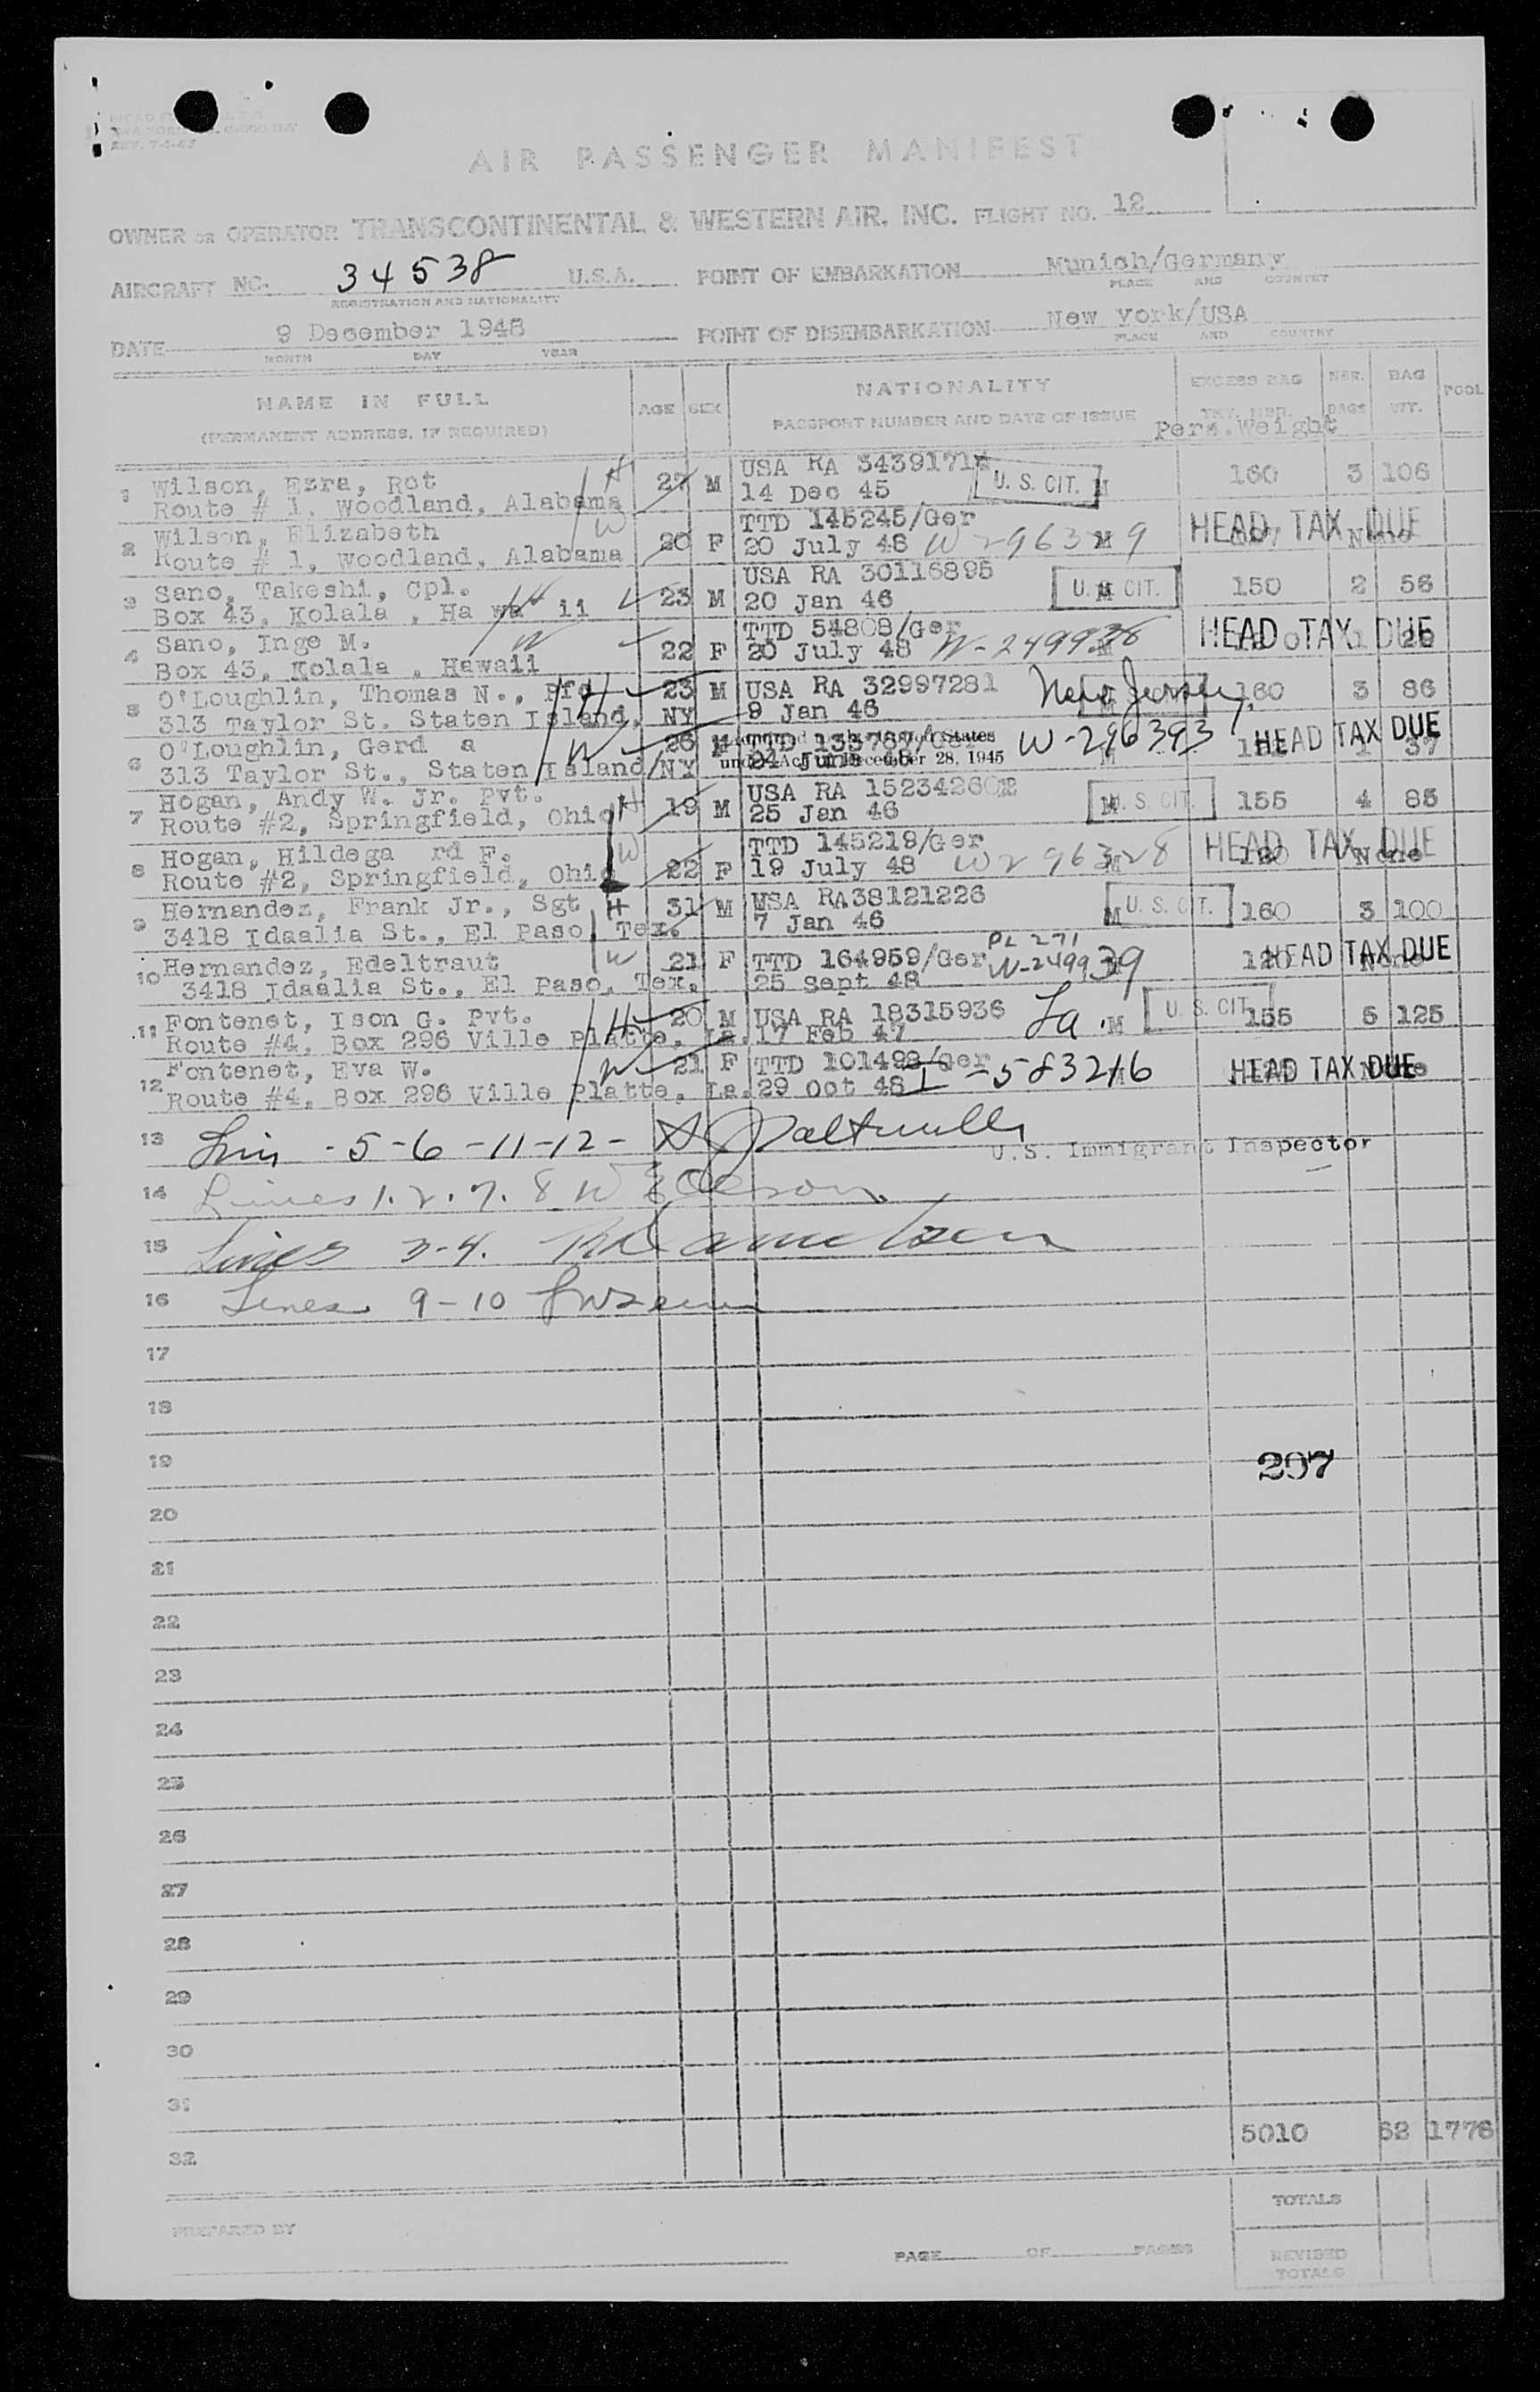 REV. 7-1-47
AIR PASSENGER MANIFEST
OWNER OR OPERATOR TRANSCONTINENTAL & WESTERN AIR, INC. FLIGHT NO. 12
AIRCRAFT NO. 34538 U.S.A. POINT OF EMBARKATION Munich/Germany
REGISTRATION AND NATIONALITY PLACE AND COUNTRY
DATE 9 December 1948 POINT OF DISEMBARKATION New York/USA
MONTH DAY YEAR PLACE AND COUNTRY
NAME IN FULL AGE SEX NATIONALITY EXCESS BAG NBR. BAG POOL
(PERMANENT ADDRESS, IF REQUIRED) PASSPORT NUMBER AND DATE OF ISSUE TKT. NBR. BAGS WT.
Pers.Weight
1 Wilson, Ezra, Rct H 27 M USA RA 34391714 U. S. CIT. M 160 3 106
Route # 1, Woodland, Alabama 14 Dec 45
2 Wilson, Elizabeth W 20 F TTD 145245/Ger HEAD TAX DUE None
Route # 1, Woodland, Alabama 20 July 48 W 296329 M
3 Sano, Takeshi, Cpl. H 23 M USA RA 30116895 U. S. CIT. M 150 2 56
Box 43, Kolala , Ha wa ii 20 Jan 46
4 Sano, Inge M. W 22 F TTD 54808/Ger HEAD TAX DUE 1
Box 43, Kolala , Hawaii 20 July 48 W-249938 M
5 O'Loughlin, Thomas N., Pfc H 23 M USA RA 32997281 New Jersey M 160 3 86
313 Taylor St. Staten Island, NY 9 Jan 46
6 O'Loughlin, Gerd a W 26 TTD 133787/Ger W-296393 M HEAD TAX DUE 1 37
313 Taylor St., Staten Island/NY 24 June 48 under Act of December 28, 1945
7 Hogan, Andy W. Jr. Pvt. H 19 M USA RA 15234260 M U. S. CIT. 155 4 85
Route #2, Springfield, Ohio 25 Jan 46
8 Hogan, Hildega rd F. W 22 F TTD 145219/Ger HEAD TAX DUE 120 None
Route #2, Springfield, Ohio 19 July 48 W296328 M
9 Hernandez, Frank Jr., Sgt H 31 M USA RA38121226 M U. S. CIT. 160 3 100
3418 Idaalia St., El Paso, Tex. 7 Jan 46
10 Hernandez, Edeltraut W 21 F TTD 164959/Ger PL 271 W-249939 120 HEAD TAX DUE None
3418 Idaalia St., El Paso, Tex. 25 Sept 48
11 Fontenot, Ison G. Pvt. H 20 M USA RA 18315936 La. M U. S. CIT. 155 5 125
Route #4, Box 296 Ville Platte, La. 17 Feb 47
12 Fontenet, Eva W. W 21 F TTD 101498/Ger I-583216 M HEAD TAX DUE None
Route #4, Box 296 Ville Platte, La. 29 Oct 48
13 -5-6-11-12-
U.S. Immigrant Inspector
14 Lines 1.2.7.8
15 Lines 3-4.
16 Lines 9-10
17
18
19 297
20
21
22
23
24
25
26
27
28
29
30
31
32 5010 62 1776
TOTALS
PREPARED BY PAGE OF PAGES
REVISED
TOTALS